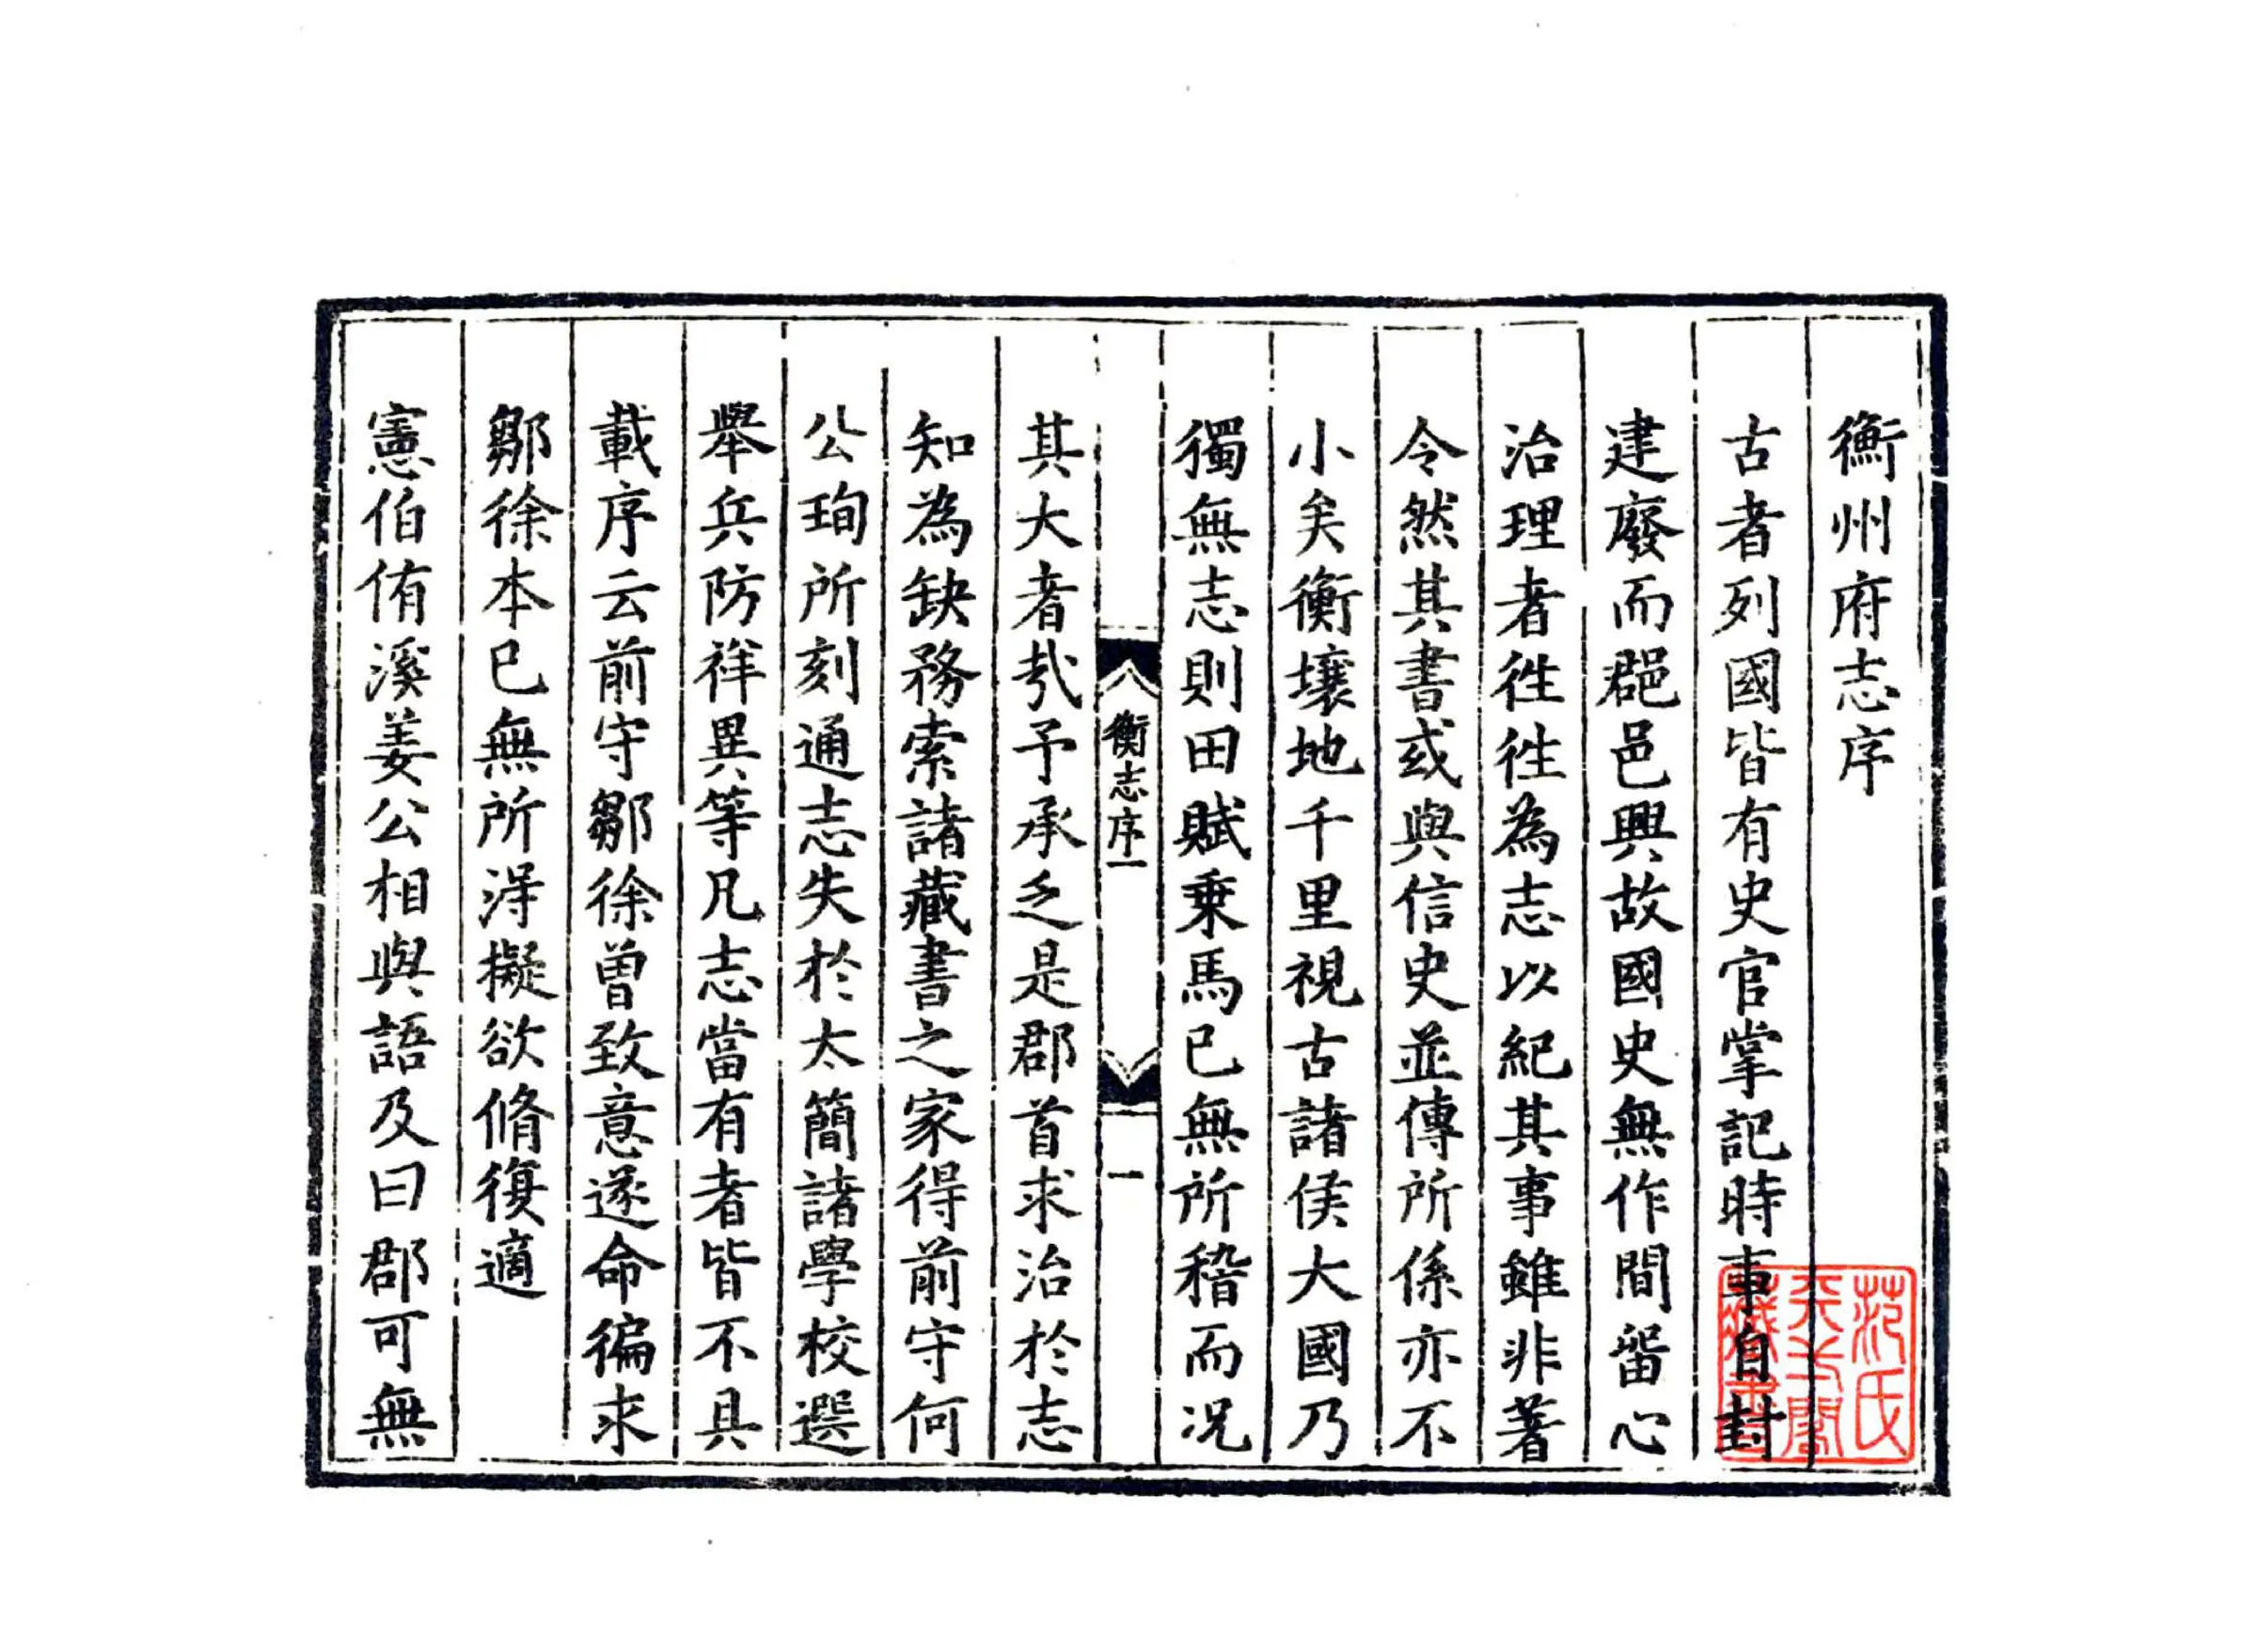 衡州府志序
古者列國皆有史官掌記時事自封
建廢而郡邑興故國史無作間留心
治理者徃徃為志以紀其事雖非著
令然其書或與信史並傳所係亦不
小矣衡壤地千里視古諸侯大國乃
獨無志則田賦乗馬已無所稽而况
衡志序一
一
其大者㢤予承乏是郡首求治於志
知為缺務索諸藏書之家得前守何
公珣所刻通志失於太簡諸學校選
舉兵防祥異等凡志當有者皆不具
載序云前守鄒徐曾致意遂命徧求
鄒徐本已無所淂擬欲脩復適
憲伯侑溪姜公相與語及曰郡可無
范氏
天一閣
藏書